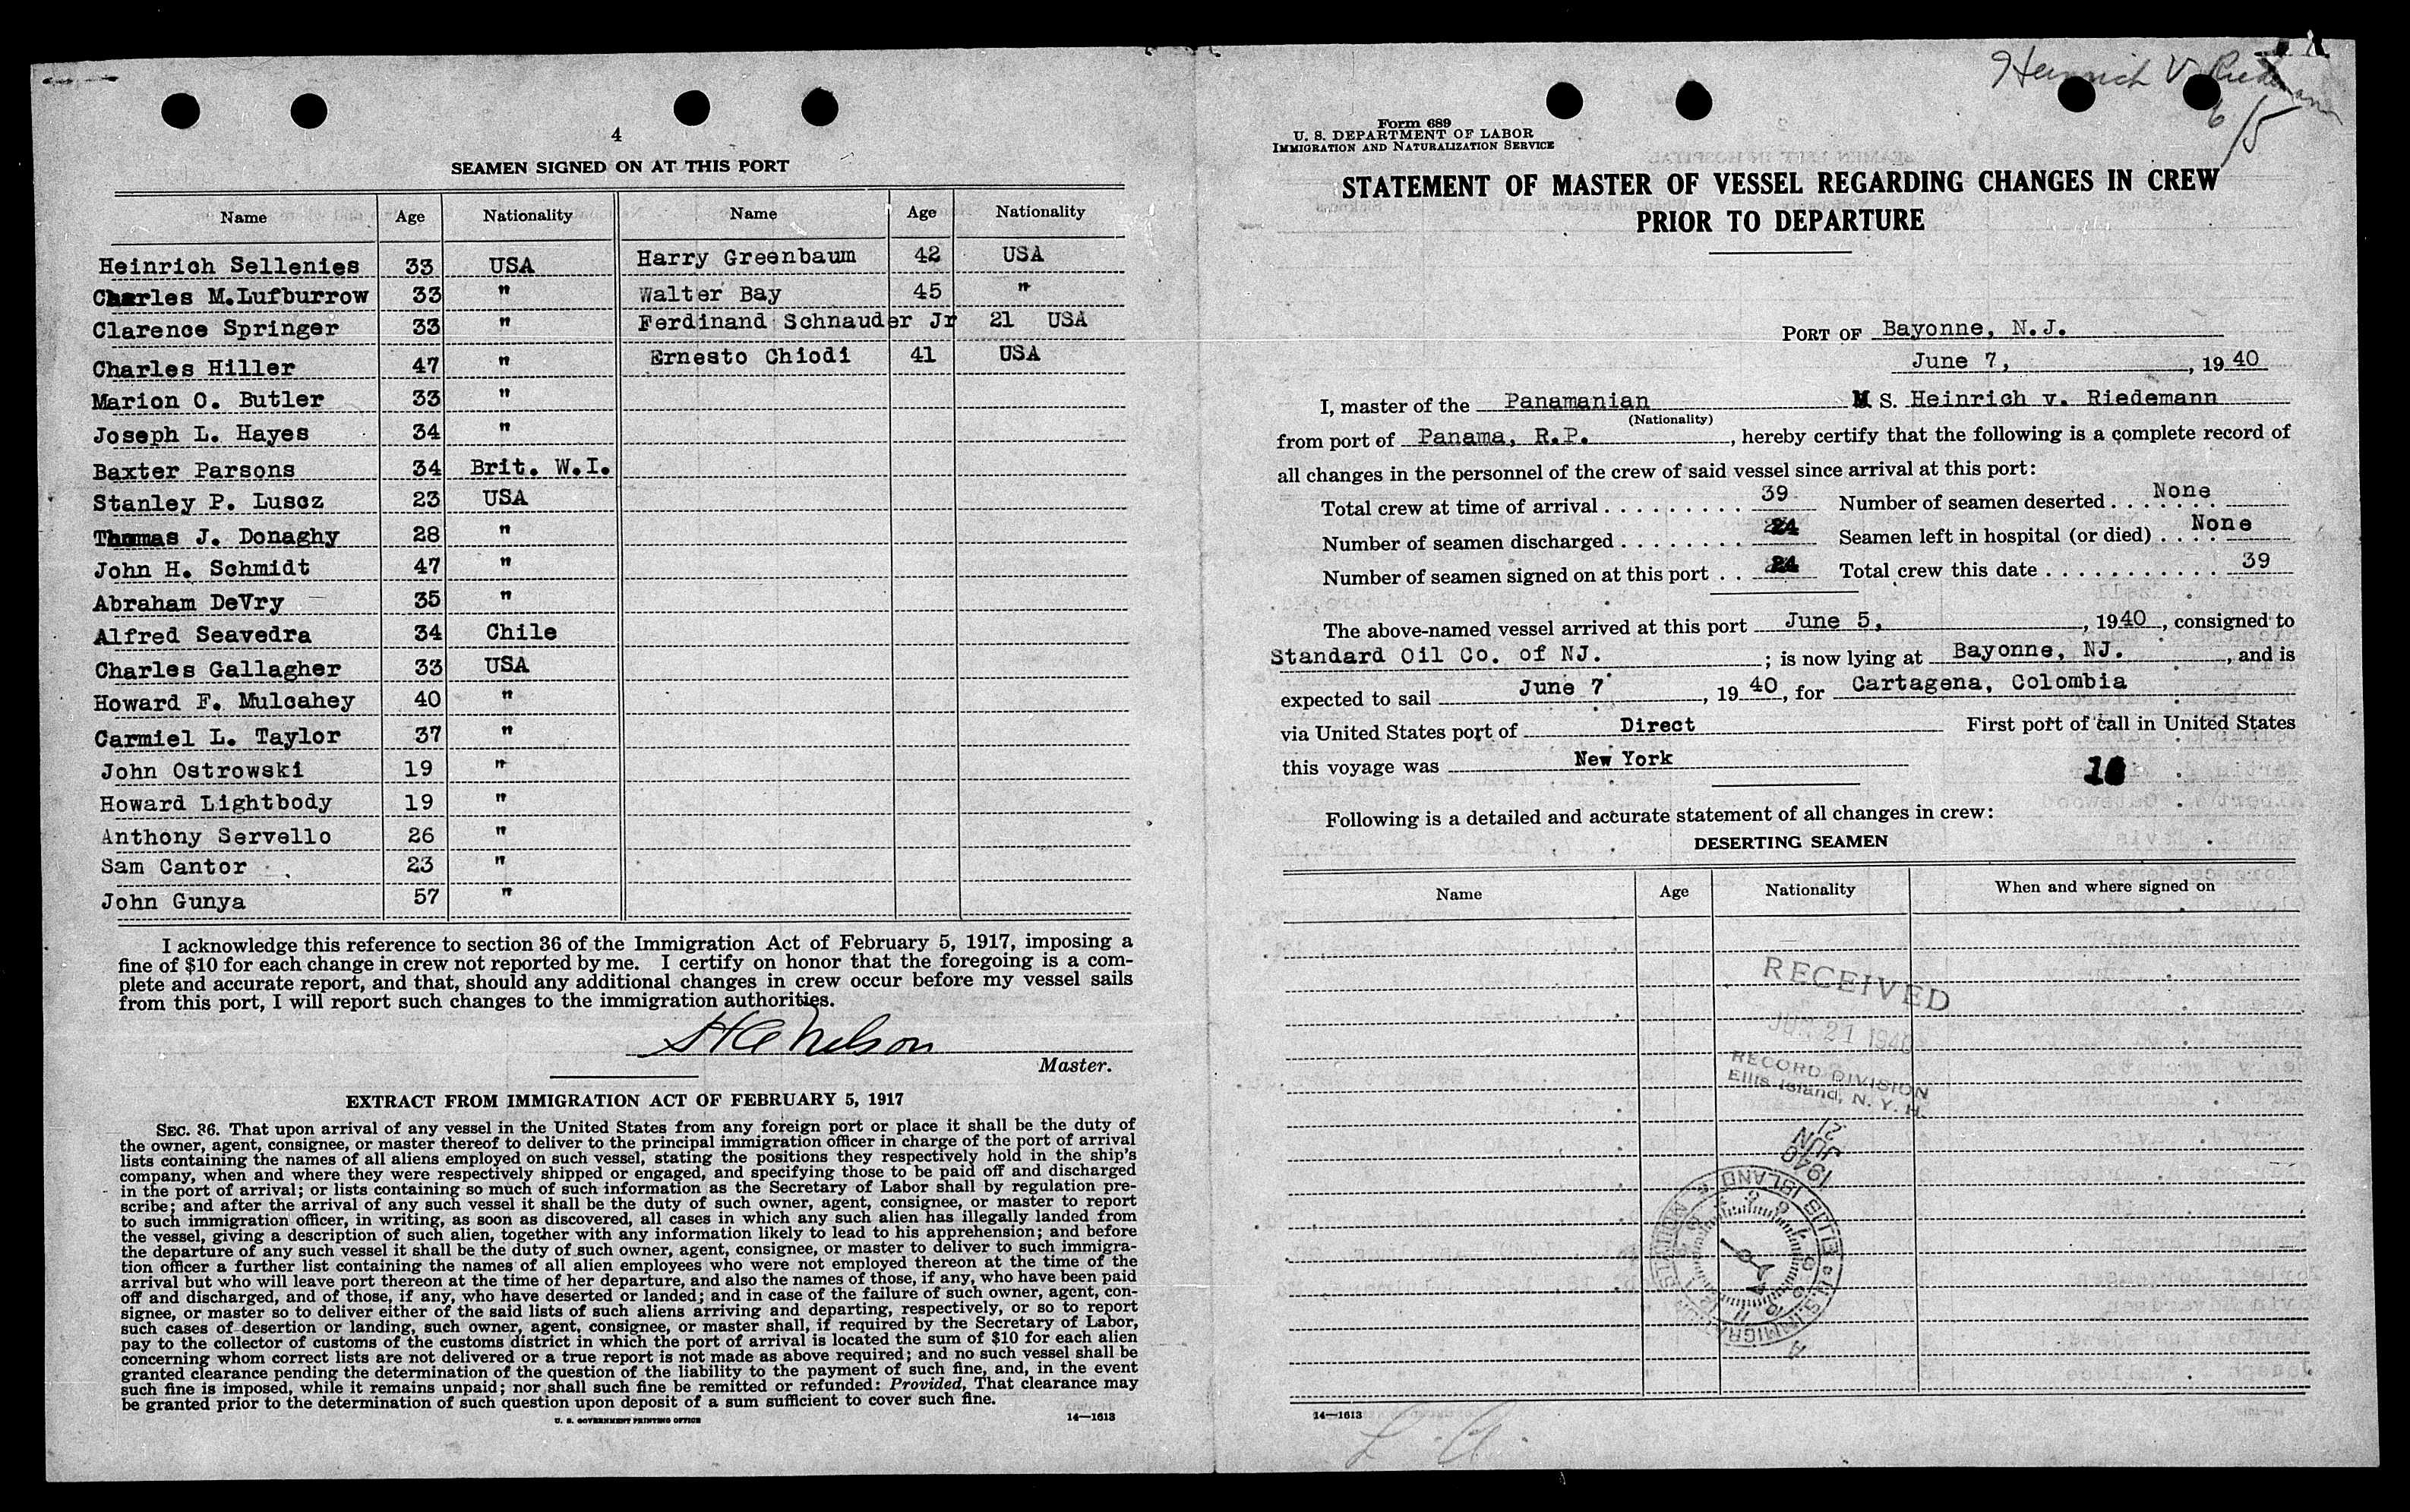 4
SEAMEN SIGNED ON AT THIS PORT
Name Age Nationality Name Age Nationality
Heinrich Sellenies 33 USA Harry Greenbaum 42 USA
Charles M.Lufburrow 33 " Walter Bay 45 "
Clarence Springer 33 " Ferdinand Schnauder Jr 21 USA
Charles Hiller 47 " Ernesto Chiodi 41 USA
Marion O. Butler 33 "
Joseph L. Hayes 34 "
Baxter Parsons 34 Brit. W.I.
Stanley P. Luscz 23 USA
Thomas J. Donaghy 28 "
John H. Schmidt 47 "
Abraham DeVry 35 "
Alfred Seavedra 34 Chile
Charles Gallagher 33 USA
Howard F. Mulcahey 40 "
Carmiel L. Taylor 37 "
John Ostrowski 19 "
Howard Lightbody 19 "
Anthony Servello 26 "
Sam Cantor 23 "
John Gunya 57 "
I acknowledge this reference to section 36 of the Immigration Act of February 5, 1917, imposing a
fine of $10 for each change in crew not reported by me. I certify on honor that the foregoing is a com-
plete and accurate report, and that, should any additional changes in crew occur before my vessel sails
from this port, I will report such changes to the immigration authorities.
Nelson
Master.
EXTRACT FROM IMMIGRATION ACT OF FEBRUARY 5, 1917
SEC. 36. That upon arrival of any vessel in the United States from any foreign port or place it shall be the duty of
the owner, agent, consignee, or master thereof to deliver to the principal immigration officer in charge of the port of arrival
lists containing the names of all aliens employed on such vessel, stating the positions they respectively hold in the ship's
company, when and where they were respectively shipped or engaged, and specifying those to be paid off and discharged
in the port of arrival; or lists containing so much of such information as the Secretary of Labor shall by regulation pre-
scribe; and after the arrival of any such vessel it shall be the duty of such owner, agent, consignee, or master to report
to such immigration officer, in writing, as soon as discovered, all cases in which any such alien has illegally landed from
the vessel, giving a description of such alien, together with any information likely to lead to his apprehension; and before
the departure of any such vessel it shall be the duty of such owner, agent, consignee, or master to deliver to such immigra-
tion officer a further list containing the names of all alien employees who were not employed thereon at the time of the
arrival but who will leave port thereon at the time of her departure, and also the names of those, if any, who have been paid
off and discharged, and of those, if any, who have deserted or landed; and in case of the failure of such owner, agent, con-
signee, or master so to deliver either of the said lists of such aliens arriving and departing, respectively, or so to report
such cases of desertion or landing, such owner, agent, consignee, or master shall, if required by the Secretary of Labor,
pay to the collector of customs of the customs district in which the port of arrival is located the sum of $10 for each alien
concerning whom correct lists are not delivered or a true report is not made as above required; and no such vessel shall be
granted clearance pending the determination of the question of the liability to the payment of such fine, and, in the event
such fine is imposed, while it remains unpaid; nor shall such fine be remitted or refunded: Provided, That clearance may
be granted prior to the determination of such question upon deposit of a sum sufficient to cover such fine.
U. S. GOVERNMENT PRINTING OFFICE 14—1613
Heinrich V. Riedemann
6/5
Form 689
U. S. DEPARTMENT OF LABOR
IMMIGRATION AND NATURALIZATION SERVICE
STATEMENT OF MASTER OF VESSEL REGARDING CHANGES IN CREW
PRIOR TO DEPARTURE
PORT OF Bayonne, N.J.
June 7, , 19 40
I, master of the Panamanian M S. Heinrich v. Riedemann
(Nationality)
from port of Panama, R.P. , hereby certify that the following is a complete record of
all changes in the personnel of the crew of said vessel since arrival at this port:
Total crew at time of arrival . . . . . . . . . 39 Number of seamen deserted . . . . . . . None
Number of seamen discharged . . . . . . . . 24 Seamen left in hospital (or died) . . . . None
Number of seamen signed on at this port . . 24 Total crew this date . . . . . . . . . . . . 39
The above-named vessel arrived at this port June 5, , 1940 , consigned to
Standard Oil Co. of NJ. ; is now lying at Bayonne, NJ. , and is
expected to sail June 7 , 19 40, for Cartagena, Colombia
via United States port of Direct First port of call in United States
this voyage was New York
Following is a detailed and accurate statement of all changes in crew:
DESERTING SEAMEN
Name Age Nationality When and where signed on
RECEIVED
JUN 21 1940
RECORD DIVISION
Ellis Island, N. Y. H.
21
JUN
1940
ELLIS ISLAND
14—1613